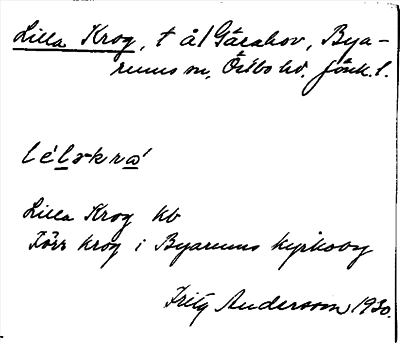 Lilla Krog, t å/ Gärahov, Bya-
rums sn, Östbo hd. Jönk. l.
lélskra
Lilla Krog hb
Förr krog i Byarums kyrkoby
Fritz Andersson 1930.